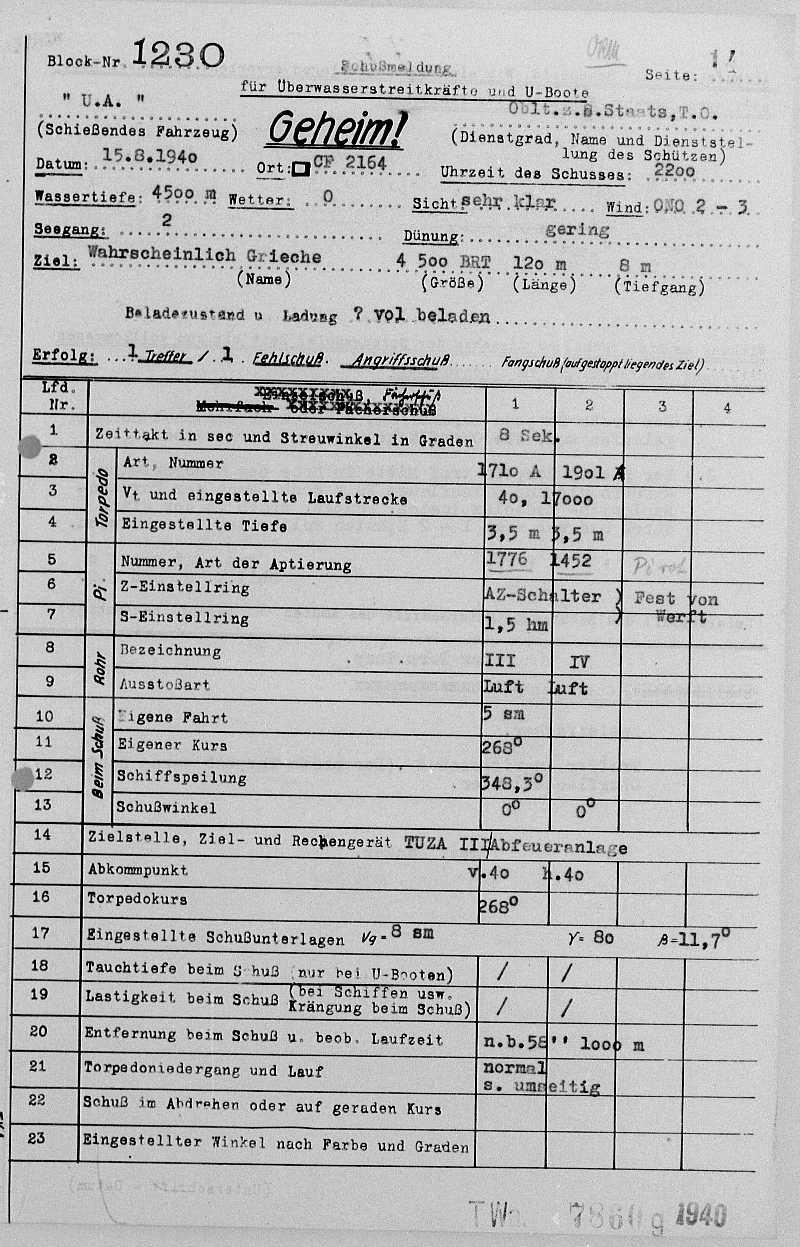 Block-Nr. 1230
Schußmeldung
Seite: 1
für Überwasserstreitkräfte und U-Boote
" U.A. "
Oblt.z.S.Staats,T.O.
(Schießendes Fahrzeug)
Geheim!
(Dienstgrad, Name und Dienststel-
lung des Schützen)
Datum: 15.8.1940
Ort: CF 2164
Uhrzeit des Schusses: 2200
Wassertiefe: 4500 m Wetter: 0 Sicht: sehr klar Wind: ONO 2 - 3
Seegang: 2 Dünung: gering
Ziel: Wahrscheinlich Grieche 4 500 BRT 120 m 8 m
(Name) (Größe) (Länge) (Tiefgang)
Beladezustand u Ladung ? vol beladen
Erfolg: 1 Treffer / 1 Fehlschuß. Angriffsschuß. Fangschuß (auf gestoppt liegendes Ziel)
Lfd. Nr. Mehrfach- oder Fächerschuß 1 2 3 4
1 Zeittakt in sec und Streuwinkel in Graden 8 Sek.
Torpedo
2 Art, Nummer 1710 A 1901 A
3 Vt und eingestellte Laufstrecke 40, 17000
4 Eingestellte Tiefe 3,5 m 3,5 m
Pi.
5 Nummer, Art der Aptierung 1776 1452
6 Z-Einstellring AZ-Schalter ) Fest von
7 S-Einstellring 1,5 hm ) Werft
Rohr
8 Bezeichnung III IV
9 Ausstoßart Luft Luft
Beim Schuß
10 Eigene Fahrt 5 sm
11 Eigener Kurs 268°
12 Schiffspeilung 348,3°
13 Schußwinkel 0° 0°
14 Zielstelle, Ziel- und Rechengerät TUZA III/Abfeueranlage
15 Abkommpunkt v.40 h.40
16 Torpedokurs 268°
17 Eingestellte Schußunterlagen Vg = 8 sm γ = 80 β = 11,7°
18 Tauchtiefe beim Schuß (nur bei U-Booten) / /
19 Lastigkeit beim Schuß (bei Schiffen usw. Krängung beim Schuß) / /
20 Entfernung beim Schuß u. beob. Laufzeit n.b.58'' 1000 m
21 Torpedoniedergang und Lauf normal
s. umseitig
22 Schuß im Abdrehen oder auf geraden Kurs
23 Eingestellter Winkel nach Farbe und Graden
1940